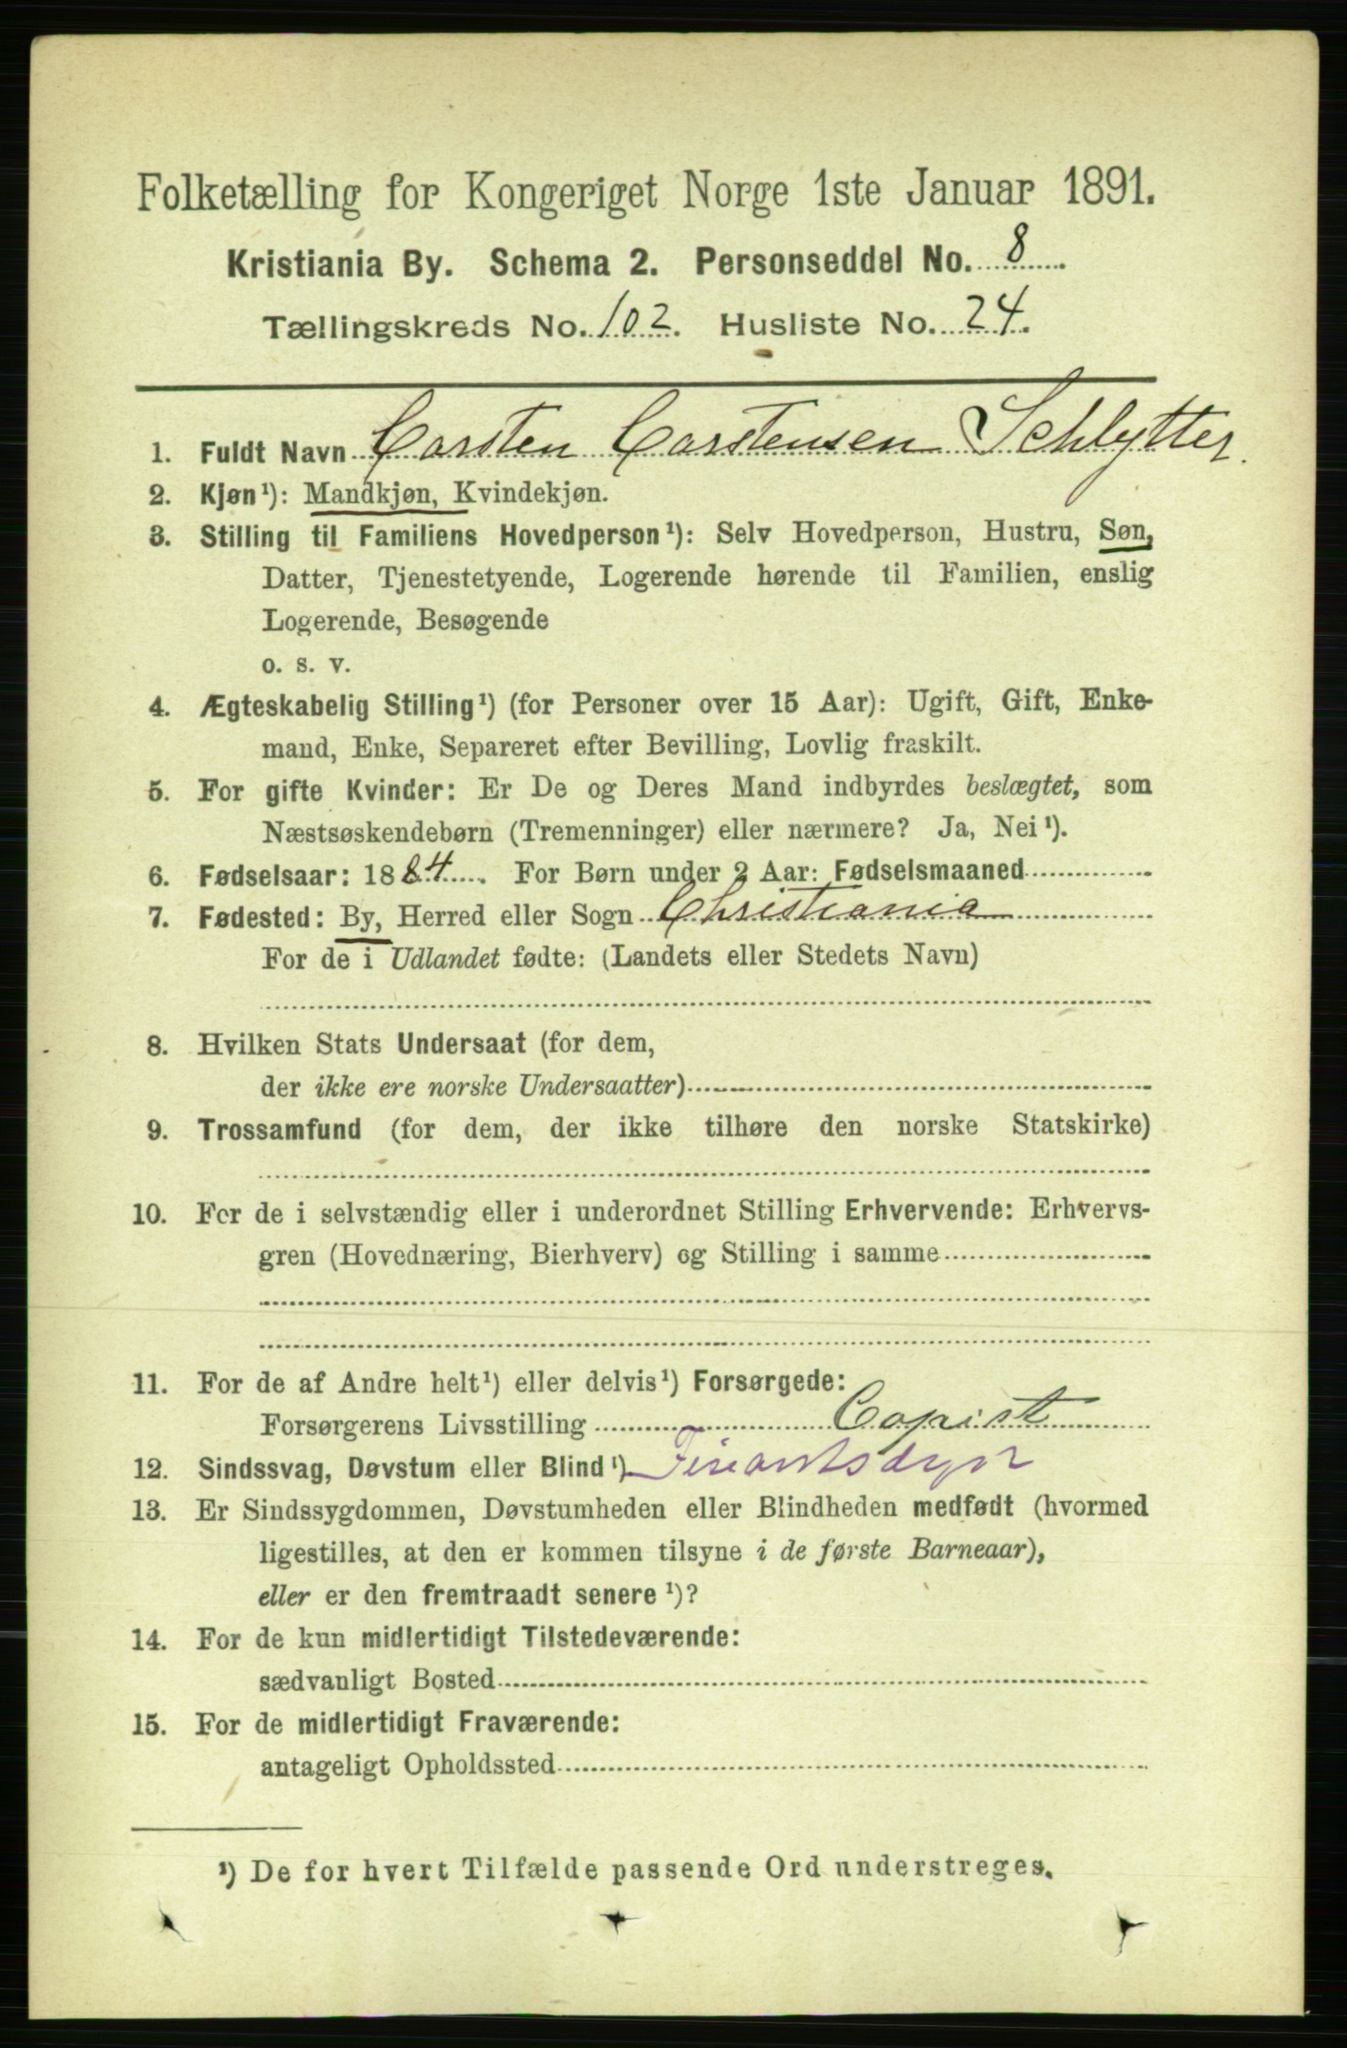 Folketælling for Kongeriget Norge 1ste Januar 1891.
Kristiania By. Schema 2. Personseddel No. 8
Tællingskreds No. 102. Husliste No. 24.
1. Fuldt Navn Carsten Carstensen Schlytter.
2. Kjøn¹): Mandkjøn, Kvindekjøn.
3. Stilling til Familiens Hovedperson¹): Selv Hovedperson, Hustru, Søn,
Datter, Tjenestetyende, Logerende hørende til Familien, enslig
Logerende, Besøgende
o. s. v.
4. Ægteskabelig Stilling¹) (for Personer over 15 Aar): Ugift, Gift, Enke-
mand, Enke, Separeret efter Bevilling, Lovlig fraskilt.
5. For gifte Kvinder: Er De og Deres Mand indbyrdes beslægtet, som
Næstsøskendebørn (Tremenninger) eller nærmere? Ja, Nei¹).
6. Fødselsaar: 1884. For Børn under 2 Aar: Fødselsmaaned
7. Fødested: By, Herred eller Sogn Christiania
For de i Udlandet fødte: (Landets eller Stedets Navn)
8. Hvilken Stats Undersaat (for dem,
der ikke ere norske Undersaatter)
9. Trossamfund (for dem, der ikke tilhøre den norske Statskirke)
10. For de i selvstændig eller i underordnet Stilling Erhvervende: Erhvervs-
gren (Hovednæring, Bierhverv) og Stilling i samme
11. For de af Andre helt¹) eller delvis¹) Forsørgede:
Forsørgerens Livsstilling Copist
12. Sindssvag, Døvstum eller Blind¹)
13. Er Sindssygdommen, Døvstumheden eller Blindheden medfødt (hvormed
ligestilles, at den er kommen tilsyne i de første Barneaar),
eller er den fremtraadt senere¹)?
14. For de kun midlertidigt Tilstedeværende:
sædvanligt Bosted
15. For de midlertidigt Fraværende:
antageligt Opholdssted
¹) De for hvert Tilfælde passende Ord understreges.